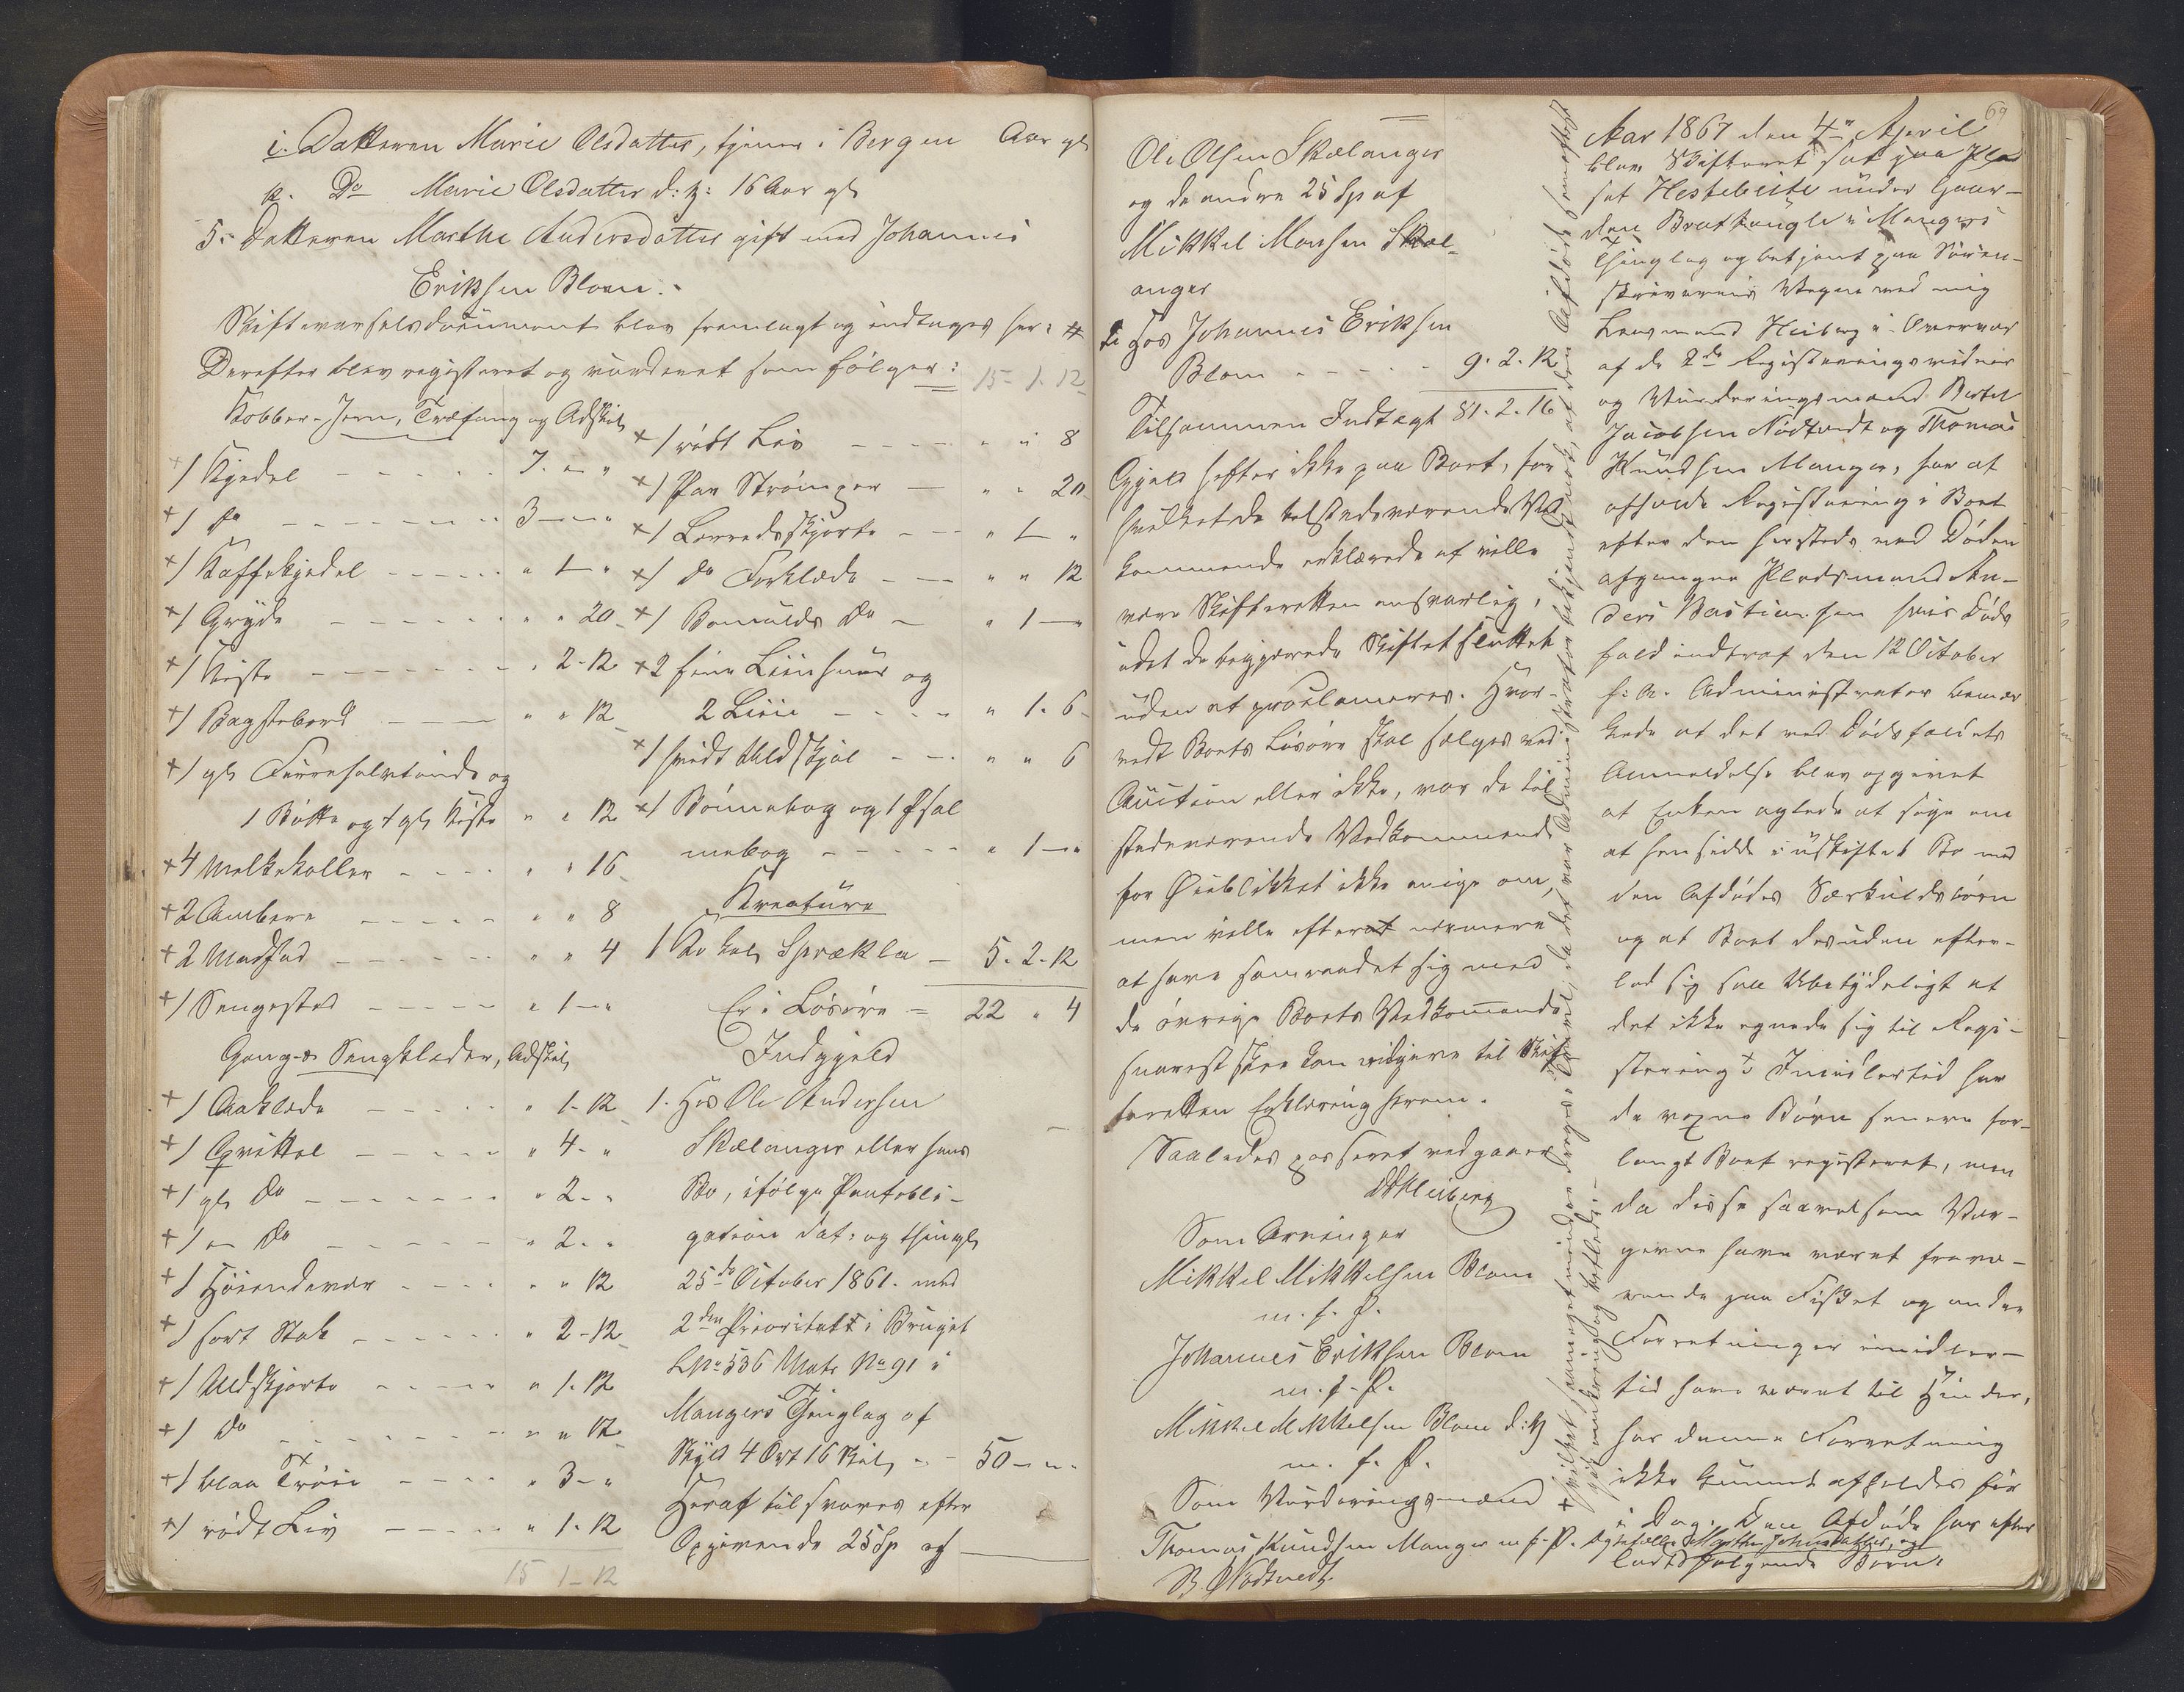 i. Datteren Marie Olsdatter, tjener i Bergen Aar gl
k. Do Marie Olsdatter d: y: 16 Aar gl
5. Datteren Marthe Andersdatter gift med Johannes
Eriksen Blom.
Skiftevarselsdocument blev fremlagt og indtages her: #
Derefter blev registeret og vurderet som følger:
Kobber-Jern, Træfang og Adskil
+ 1 Kjedel 7. " "
+ 1 do 3 – "
+ 1 Kaffekjedel " 1 – "
+ 1 Gryde " " 20
+ 1 Kiste " 2 - 12
+ 1 Bagstebord " " 12
+ 1 gl Førreholvtønde og
1 Bøtte og 1 gl Kiste " " 12
+ 4 Melkekoller " " 16
+ 2 Ambere " " 8
+ 2 Madfad " " 4
+ 1 Sengested " 1 – "
Gang- & Sengklæder, Adskil
+ 1 Aaklæde " 1 - 12
+ 1 Grittel " 4 - "
+ 1 gl Do " 2 - "
+ 1 Do " 2 - "
+ 1 Hovendevær " " 12
+ 1 sort Stak " 2 - 12
+ 1 Uldskjorte " 1 - 12
+ 1 Do " " 12
+ 1 blaa Trøie " 3 - "
+ 1 rødt Liv " 1 - 12
15 1 - 12
15 - 1 - 12
+ 1 rødt Liv " " 8
+ 1 Par Strømper " " 20
+ 1 Lerredsskjorte " 1 – "
+ 1 do Forklæde " " 12
+ 1 Bomulds Do " 1 – "
+ 2 fine Liinhuer og
2 Liin " 1 - 6
+ 1 hvidt Uldskjøl " " 6
+ 1 Bønnebog og 1 Psal
mebog " 1 – "
Kreature
1 Ko kal Sprækla 5. 2. 12
Er i Løsøre = 22 " 4
Indgjeld
1. Hos Ole Andersen
Skælanger eller hans
Bo, ifølge Pantobli-
gation dat: og thingl
25de October 1861. med
2den Prioritett i Bruget
LNo 536 Matr No 91 i
Mangers Thinglag af
Skyld 4 Ort 16 Skil 50 – " "
Heraf tilsvares efter
Opgivende 25 Sp af
Ole Olsen Skælanger
og de andre 25 Sp af
Mikkel Monsen Skæl-
anger
2. Hos Johannes Eriksen
Blom 9. 2. 12
Tilsammen Indtægt 81. 2. 16
Gjæld hefter ikke paa Boet, for
hvilket de tilstedeværende Ved
kommende erklærede at ville
være Skifteretten ansvarlig,
idet de begjærede Skiftet sluttet
uden at proclameres. Hvor-
vidt Boets Løsøre skal sælges ved
Auction eller ikke, var de til
stedeværende Vedkommende
for Øieblikket ikke enige om,
men ville efterat nærmere
at have samraadet sig med
de øvrige Boets Vedkommende
snarest skee kan indgive til Skif
teretten Erklæring herom.
Saaledes passeret vedgaaer
Heiberg
Som Arvinger
Mikkel Mikkelsen Blom
m. f. P.
Johannes Eriksen Blom
m. f. P.
Mikkel Mikkelsen Blom d: y
m. f. P.
Som Vurderingsmænd
Thomas Knudsen Manger m. f. P.
B. J Nødtvedt
69
Aar 1867 den 4de April
blev Skifteret sat paa Plad
set Hestebeite under Gaar-
den Bratkaugle i Mangers
Thinglag og betjent paa Soren-
skriverens Vegne ved mig
Lensmand Heiberg i Overvær
af de 2de Registreringsvidner
og Vurderingsmænd Bertel
Jacobsen Nødtvedt og Thomas
Knudsen Manger, for at
afholde Registrering i Boet
efter den hersteds ved Døden
afgangne Pladsmand An-
ders Bastiansen hvis Døds
fald indtraf den 12 October
f: A. Administrator bemær
kede at det ved Dødsfaldets
Anmeldelse blev opgivet
at Enken agtede at søge om
at hensidde i uskiftet Bo med
den Afdødes Særkuldsbørn
og at Boet desuden efter-
lod sig saa Ubetydeligt at
det ikke egnede sig til Regi-
strering + Imidlertid har
de voxne Børn senere for-
langt Boet registeret, men
da disse saavelsom Vær-
gerne have været fravæ-
rende paa Fisket og andre
Forretninger imidler-
tid have været til Hinder,
har denne Forretning
ikke kunnet afholdes før
i Dag. Den Afdøde har efter
ladt følgende Børn: